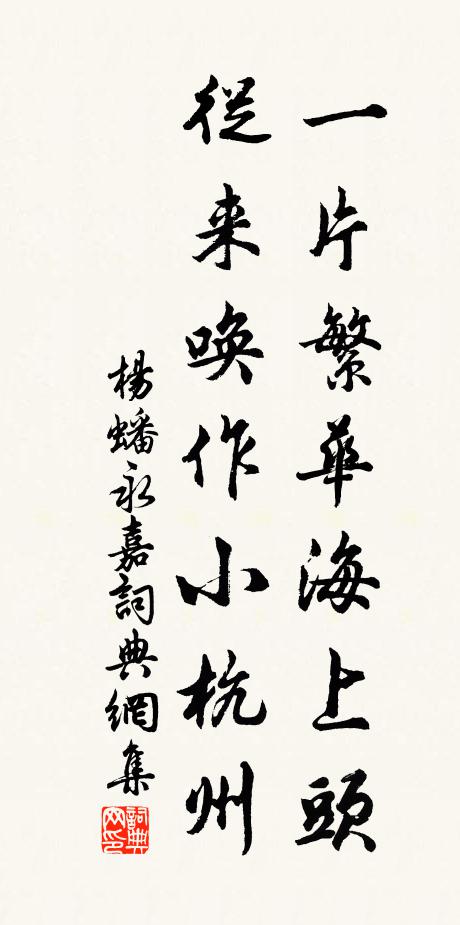 一片繁華海上頭
從来喚作小杭州
楊蟠永嘉詞典網集
詞典
网印